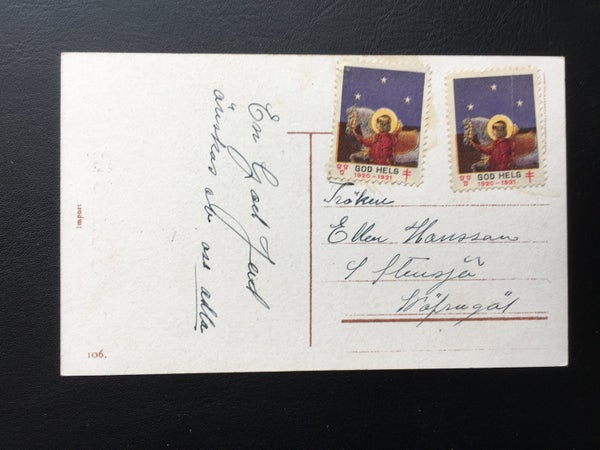 En God Jul
önskas av oss alla
GOD HELG
1920-1921
GOD HELG
1920-1921
Fröken
Ellen Hansson
Stensjö
Import
106.